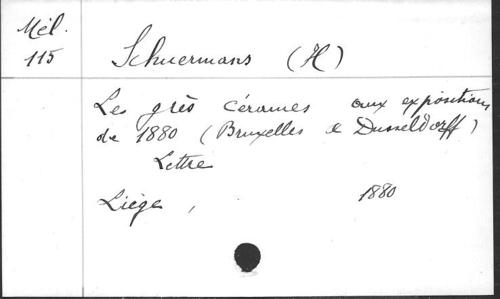 Mél.
115
Schuermans (H)
Les grès cérames aux expositions
de 1880 (Bruxelles & Dusseldorff)
Lettre
Liège, 1880